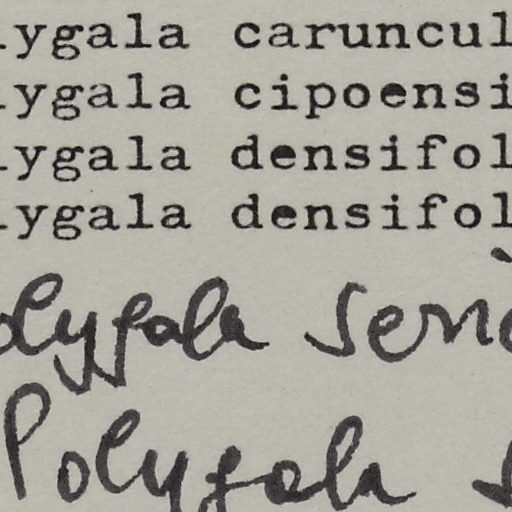 lygala caruncul
lygala cipoensi
lygala densifol
lygala densifol
olygala seri
Polygala s